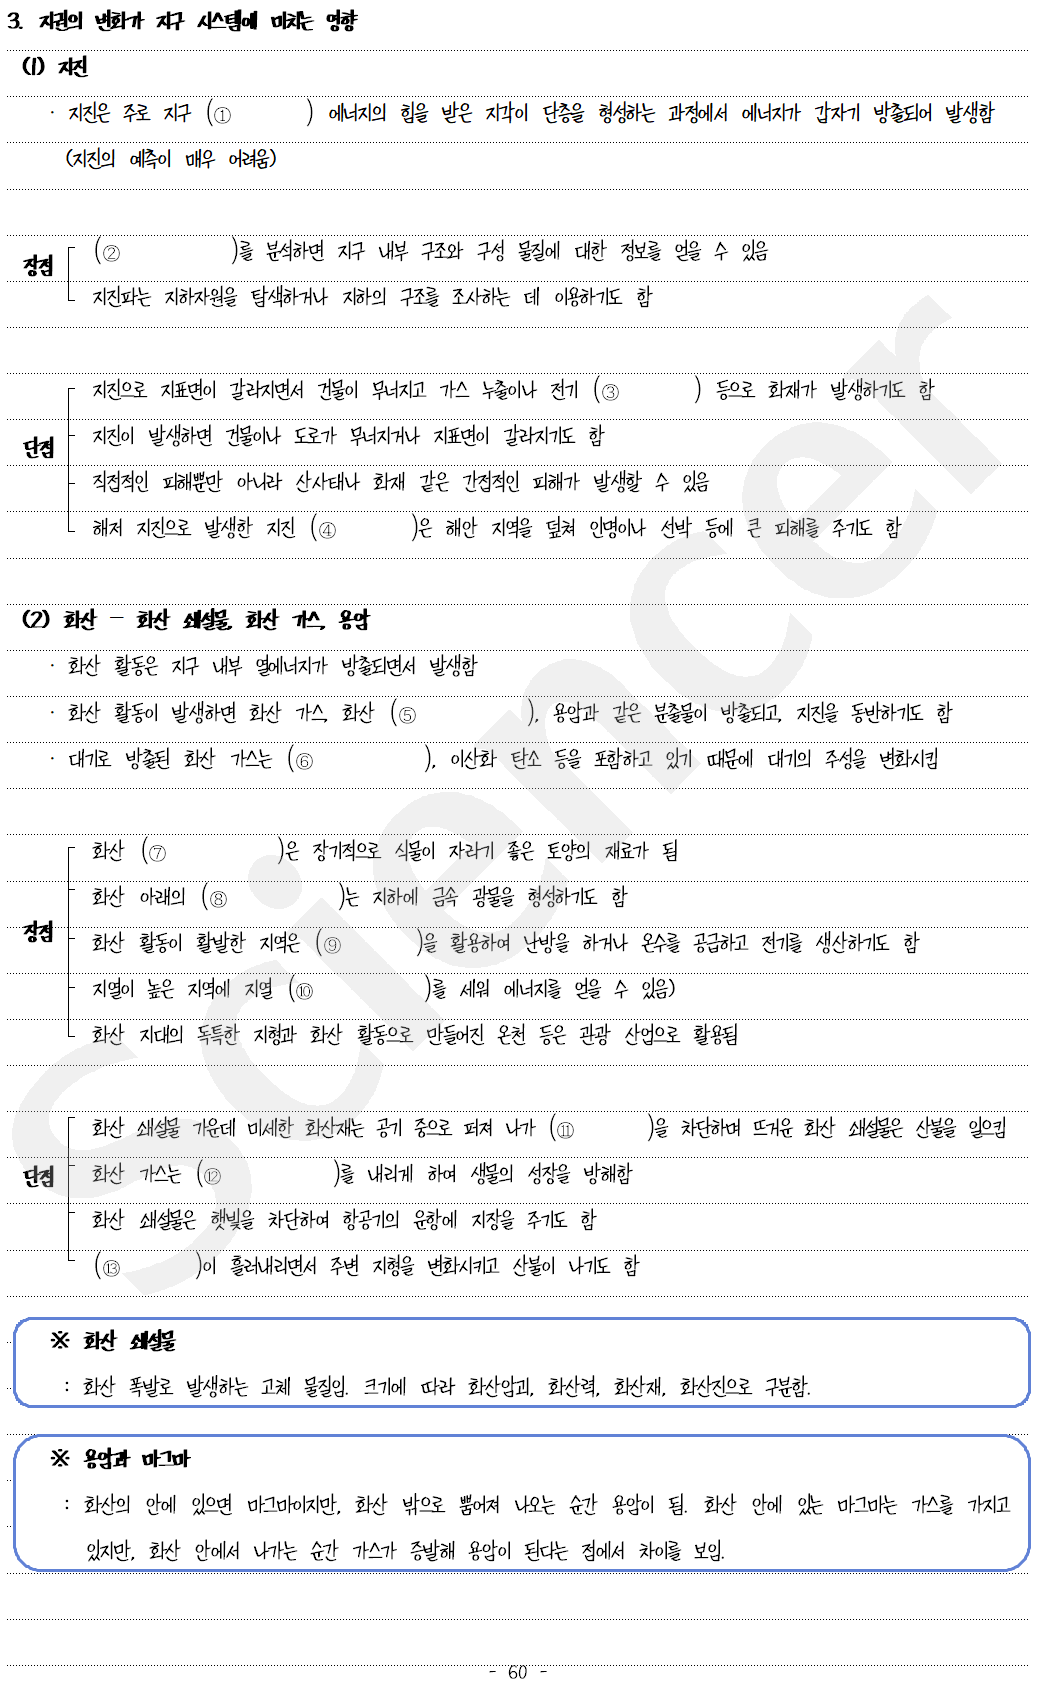 3. 지권의 변화가 지구 시스템에 미치는 영향
(1) 지진
· 지진은 주로 지구 (① ) 에너지의 힘을 받은 지각이 단층을 형성하는 과정에서 에너지가 갑자기 방출되어 발생함
(지진의 예측이 매우 어려움)
장점
(② )를 분석하면 지구 내부 구조와 구성 물질에 대한 정보를 얻을 수 있음
지진파는 지하자원을 탐색하거나 지하의 구조를 조사하는 데 이용하기도 함
단점
지진으로 지표면이 갈라지면서 건물이 무너지고 가스 누출이나 전기 (③ ) 등으로 화재가 발생하기도 함
지진이 발생하면 건물이나 도로가 무너지거나 지표면이 갈라지기도 함
직접적인 피해뿐만 아니라 산사태나 화재 같은 간접적인 피해가 발생할 수 있음
해저 지진으로 발생한 지진 (④ )은 해안 지역을 덮쳐 인명이나 선박 등에 큰 피해를 주기도 함
(2) 화산 - 화산 쇄설물, 화산 가스, 용암
· 화산 활동은 지구 내부 열에너지가 방출되면서 발생함
· 화산 활동이 발생하면 화산 가스, 화산 (⑤ ), 용암과 같은 분출물이 방출되고, 지진을 동반하기도 함
· 대기로 방출된 화산 가스는 (⑥ ), 이산화 탄소 등을 포함하고 있기 때문에 대기의 주성을 변화시킴
장점
화산 (⑦ )은 장기적으로 식물이 자라기 좋은 토양의 재료가 됨
화산 아래의 (⑧ )는 지하에 금속 광물을 형성하기도 함
화산 활동이 활발한 지역은 (⑨ )을 활용하여 난방을 하거나 온수를 공급하고 전기를 생산하기도 함
지열이 높은 지역에 지열 (⑩ )를 세워 에너지를 얻을 수 있음)
화산 지대의 독특한 지형과 화산 활동으로 만들어진 온천 등은 관광 산업으로 활용됨
단점
화산 쇄설물 가운데 미세한 화산재는 공기 중으로 퍼져 나가 (⑪ )을 차단하며 뜨거운 화산 쇄설물은 산불을 일으킴
화산 가스는 (⑫ )를 내리게 하여 생물의 성장을 방해함
화산 쇄설물은 햇빛을 차단하여 항공기의 운항에 지장을 주기도 함
(⑬ )이 흘러내리면서 주변 지형을 변화시키고 산불이 나기도 함
※ 화산 쇄설물
: 화산 폭발로 발생하는 고체 물질임. 크기에 따라 화산암괴, 화산력, 화산재, 화산진으로 구분함.
※ 용암과 마그마
: 화산의 안에 있으면 마그마이지만, 화산 밖으로 뿜어져 나오는 순간 용암이 됨. 화산 안에 있는 마그마는 가스를 가지고
있지만, 화산 안에서 나가는 순간 가스가 증발해 용암이 된다는 점에서 차이를 보임.
- 60 -
Sciencer